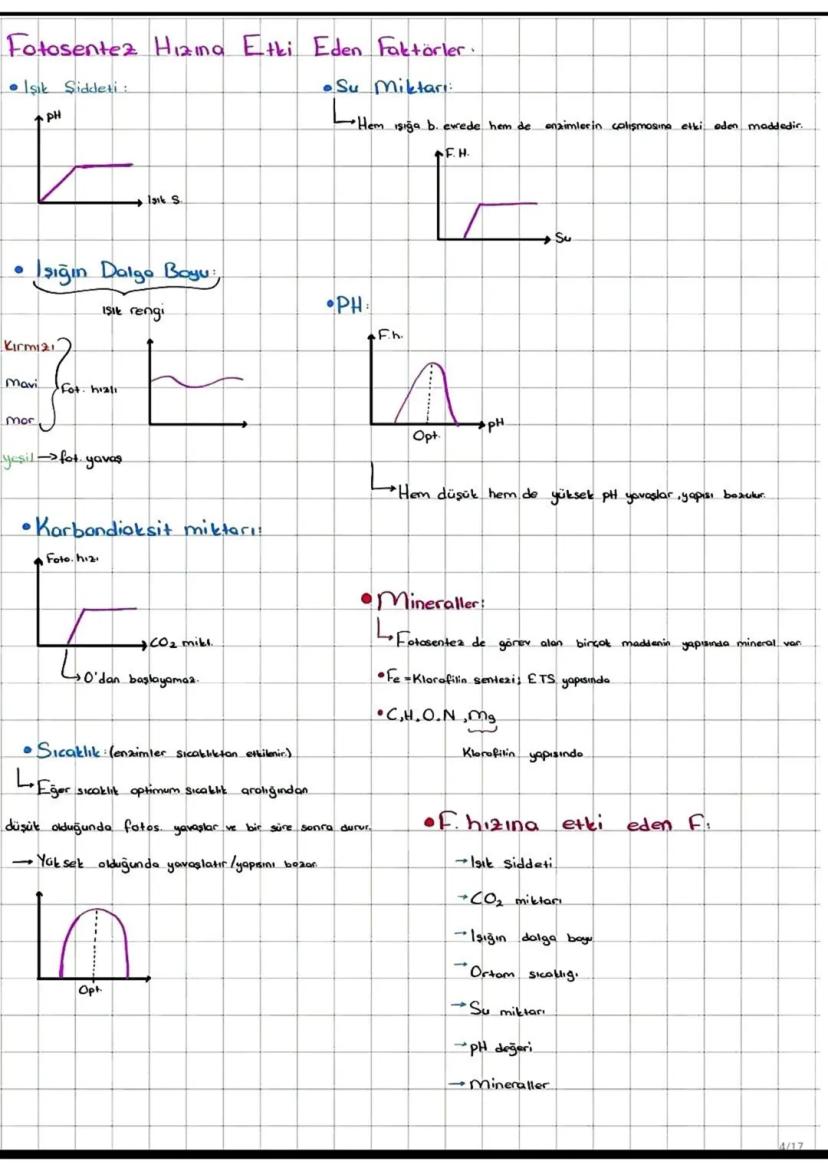 Fotosentez Hızına Etki Eden Faktörler.
• Işık Şiddeti:
pH
Işık S.
• Işığın Dalga Boyu:
Işık rengi
Kırmızı
mavi
mor
Fot. hızlı
yeşil → fot. yavaş
• Karbondioksit miktarı:
Foto. hızı
CO₂ mikt.
O'dan başlayamaz.
• Sıcaklık: (enzimler sıcaklıktan etkilenir.)
Eğer sıcaklık optimum sıcaklık aralığından
düşük olduğunda fotos. yavaşlar ve bir süre sonra durur.
→ Yüksek olduğunda yavaşlatır/yapısını bozar.
Opt.
• Su Miktarı:
Hem ışığa b. evrede hem de enzimlerin çalışmasına etki eden maddedir.
F.H.
Su
• PH:
F.h.
pH
Opt.
Hem düşük hem de yüksek pH yavaşlar, yapısı bozulur.
• Mineraller:
Fotosentez de görev alan birçok maddenin yapısında mineral var.
• Fe = Klorofilin sentezi; ETS yapısında
• C,H,O,N,Mg
Klorofilin yapısında
• F. hızına etki eden F:
→ Işık şiddeti
→ CO₂ miktarı
→ Işığın dalga boyu
→ Ortam sıcaklığı
→ Su miktarı
→ pH değeri
→ Mineraller
4/17